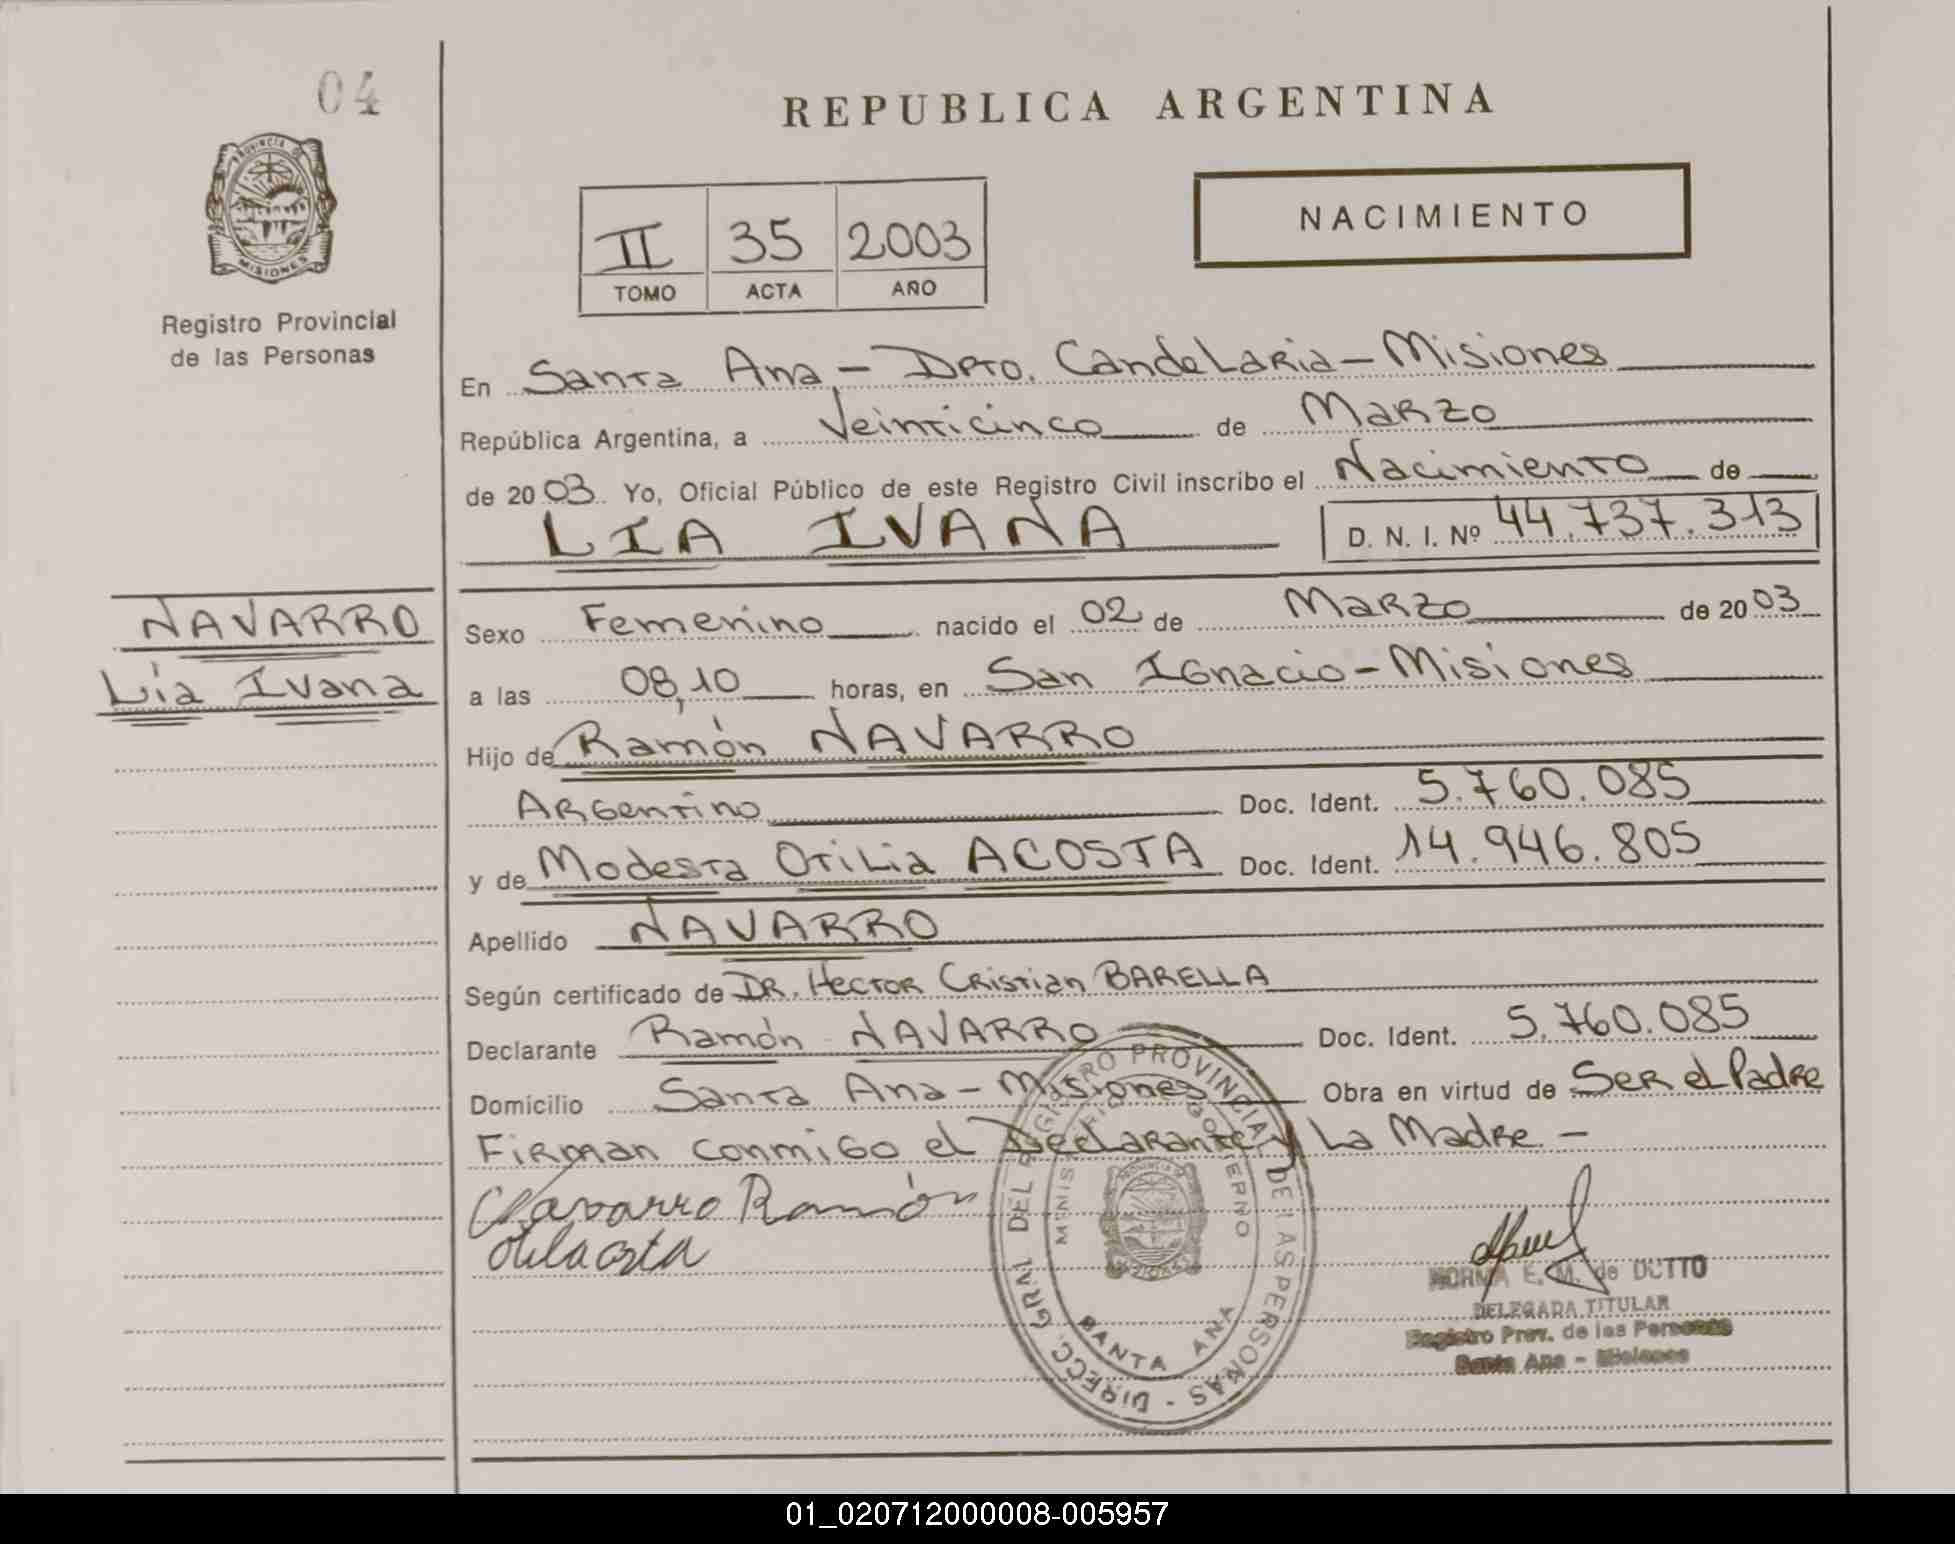 04
REPUBLICA ARGENTINA
PROVINCIA DE
MISIONES
Registro Provincial
de las Personas
II 35 2003
TOMO ACTA AÑO
NACIMIENTO
En Santa Ana - Dpto. Candelaria - Misiones
República Argentina, a Veinticinco de Marzo
de 2003 Yo, Oficial Público de este Registro Civil inscribo el Nacimiento de
LIA IVANA D. N. I. Nº 44.737.313
NAVARRO
Lía Ivana
Sexo Femenino nacido el 02 de Marzo de 2003
a las 08,10 horas, en San Ignacio - Misiones
Hijo de Ramón NAVARRO
Argentino Doc. Ident. 5.760.085
y de Modesta Otilia ACOSTA Doc. Ident. 14.946.805
Apellido NAVARRO
Según certificado de DR. Hector Cristian BARELLA
Declarante Ramón NAVARRO Doc. Ident. 5.760.085
Domicilio Santa Ana - Misiones Obra en virtud de Ser el Padre
Firman conmigo el Declarante y La Madre. -
Navarro Ramón
DIRECC. GRAL DEL REGISTRO PROVINCIAL DE LAS PERSONAS
GOBIERNO
SANTA ANA
NORMA E. M. de DUTTO
DELEGADA TITULAR
Registro Prov. de las Personas
Santa Ana - Misiones
01_020712000008-005957